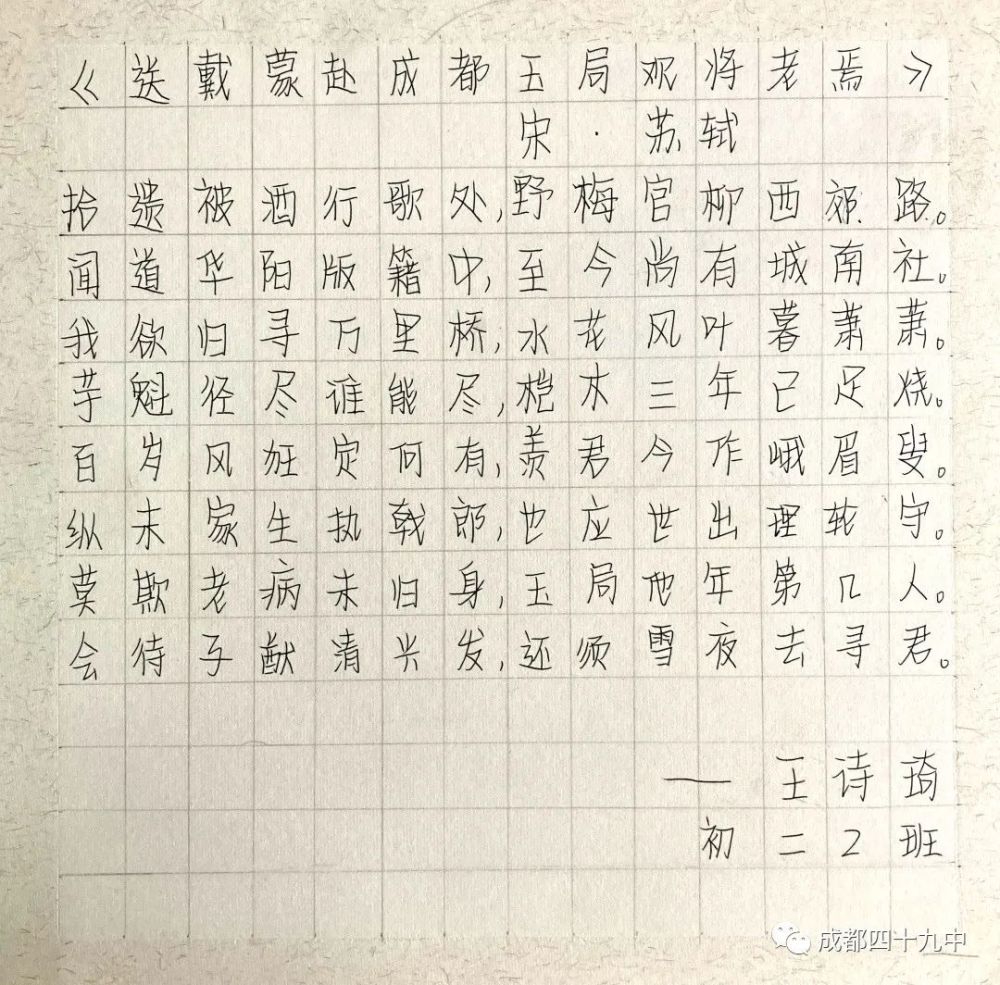 《送戴蒙赴成都玉局观将老焉》
宋·苏轼
拾遗被酒行歌处,野梅官柳西郊路。
闻道华阳版籍中,至今尚有城南社。
我欲归寻万里桥,水花风叶暮萧萧。
芋魁径尽谁能尽,桤木三年已足烧。
百岁风狂定何有,羡君今作峨眉叟。
纵未家生执戟郎,也应世出埋轮守。
莫欺老病未归身,玉局他年第几人。
会待子猷清兴发,还须雪夜去寻君。
——王诗琦
初二2班
成都四十九中